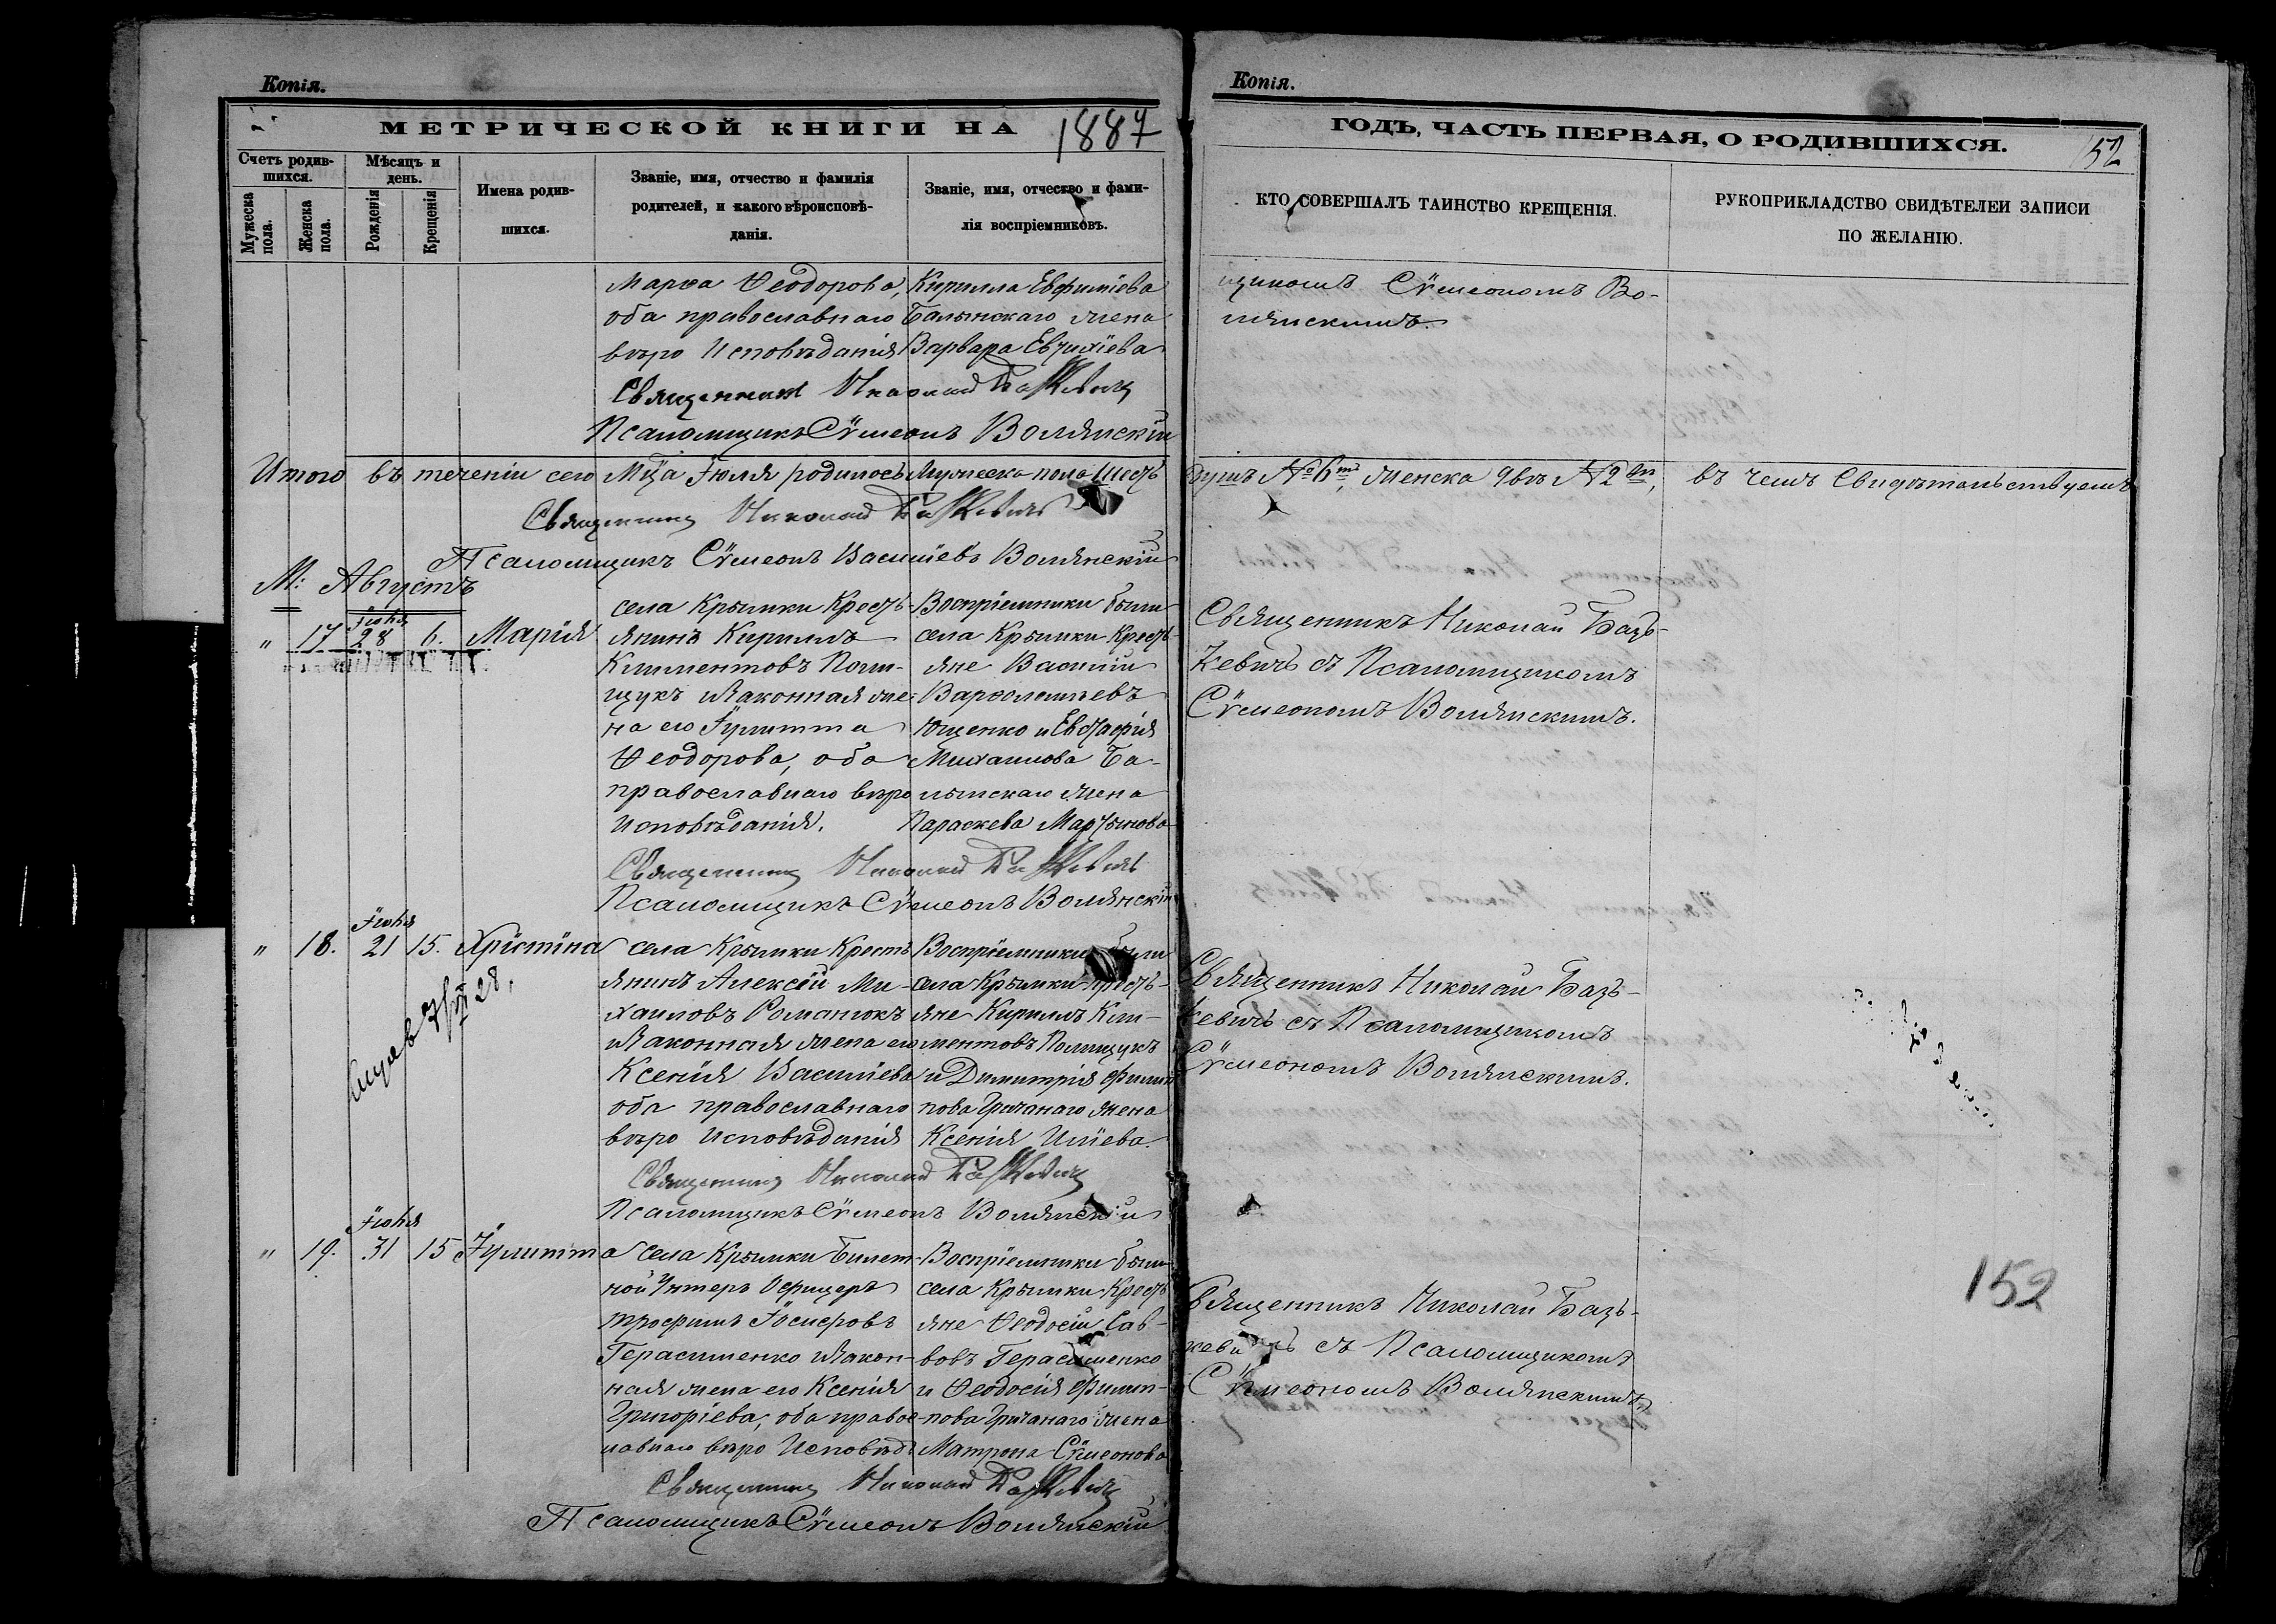 Копія.
МЕТРИЧЕСКОЙ КНИГИ НА 1887
Счетъ родив-
шихся.
Мужеска пола.
Женска пола.
Мѣсяцъ и день.
Рожденія
Крещенія
Имена родив-
шихся.
Званіе, имя, отчество и фамилія
родителей, и какого вѣроисповѣ-
данія.
Званіе, имя, отчество и фами-
лія воспріемниковъ.
Марѳа Ѳеодорова,
оба православнаго
вѣро Исповѣданія
Кирилла Евфиміева
Балынскаго жена
Варвара Евѳиміева
Священникъ Николай Базкевичъ
Псаломщикъ Сѵмеонъ Волянскій
Итого въ теченіи сего Мца Іюля родилось Мужеска пола Шесть
Священникъ Николай Базкевичъ
Псаломщикъ Сѵмеонъ Василіевъ Волянскій
М: Августъ
" 17 Іюля 28 6. Марія
села Крымки Кресть-
янинъ Кириллъ
Климентовъ Поли-
щукъ и Законная же-
на его Іулитта
Ѳеодорова, оба
православнаго вѣро
Исповѣданія.
Воспріемники были
села Крымки Кресть-
яне Василій
Варѳоломѣевъ
Ющенко и Евстафія
Михаилова Ба-
лынскаго жена
Параскева Мартынова
Священникъ Николай Базкевичъ
Псаломщикъ Сѵмеонъ Волянскій
" 18. Іюля 21 15. Христина
села Крымки Кресть
янинъ Алексѣй Ми-
хаиловъ Романюкъ
и Законная жена его
Ксенія Василіева
оба православнаго
вѣро Исповѣданія
Воспріемники были
села Крымки Кресть-
яне Кириллъ Кли-
ментовъ Полищукъ
и Димитрія Филип
пова Гричанаго жена
Ксенія Иліева
Священникъ Николай Базкевичъ
Псаломщикъ Сѵмеонъ Волянскій
" 19. Іюля 31 15 Іулитта
села Крымки Билет-
ной Унтеръ Офицеръ
Трофимъ Іосифовъ
Герасименко и Закон-
ная жена его Ксенія
Григоріева, оба правос-
лавнаго вѣро Исповѣд
Воспріемники были
села Крымки Кресть
яне Ѳеодосій Сав-
вовъ Герасименко
и Ѳеодосія Филип-
пова Гричанаго жена
Матрона Сѵмеонова
Священникъ Николай Базкевичъ
Псаломщикъ Сѵмеонъ Волянскій
Копія.
ГОДЪ, ЧАСТЬ ПЕРВАЯ, О РОДИВШИХСЯ.
152
КТО СОВЕРШАЛЪ ТАИНСТВО КРЕЩЕНІЯ.
РУКОПРИКЛАДСТВО СВИДѢТЕЛЕЙ ЗАПИСИ
ПО ЖЕЛАНІЮ.
щикомъ Сѵмеономъ Во-
лянскимъ.
душъ № 6ть, женска двѣ № 2вѣ, въ чемъ Свидѣтельствуемъ
Священникъ Николай Базъ-
кевичъ съ Псаломщикомъ
Сѵмеономъ Волянскимъ.
Священникъ Николай Базъ-
кевичъ съ Псаломщикомъ
Сѵмеономъ Волянскимъ.
Священникъ Николай Базъ-
кевичъ съ Псаломщикомъ
Сѵмеономъ Волянскимъ
152